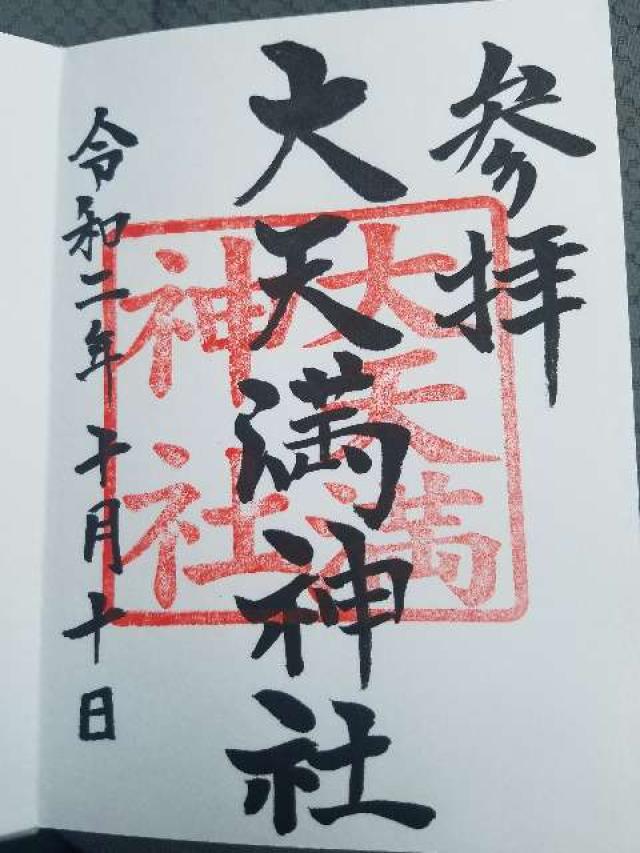 参拝
大天満神社
大天満
神社
令和二年十月十日